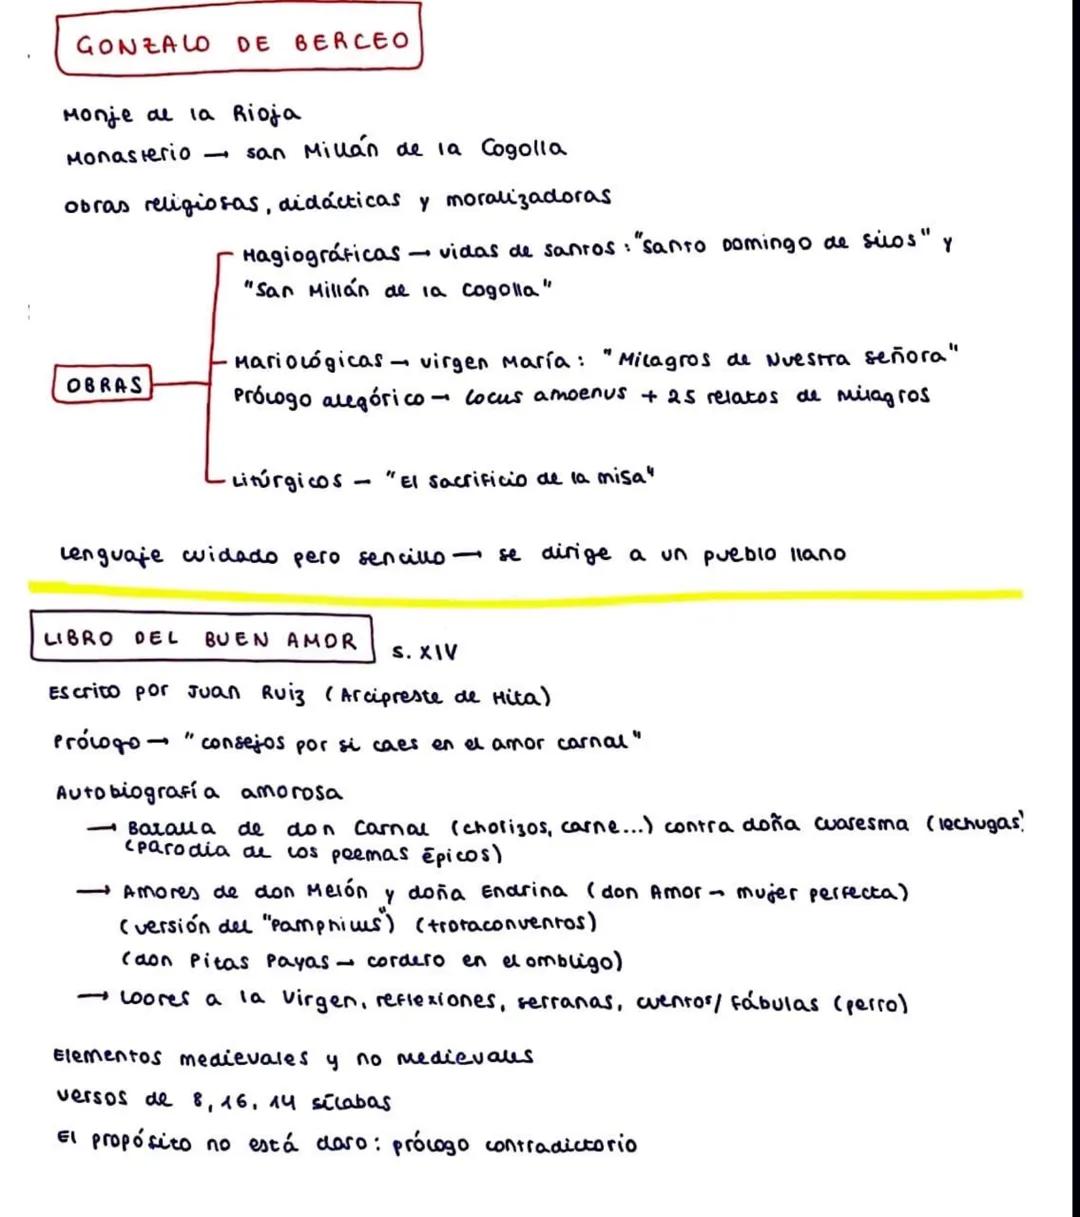 GONZALO DE BERCEO
Monje de la Rioja
Monasterio → san Millán de la Cogolla
Obras religiosas, didácticas y moralizadoras
Hagiográficas → vidas de santos : "Santo Domingo de Silos" y
"San Millán de la Cogolla"
OBRAS
Mariológicas → virgen María : "Milagros de Nuestra Señora"
Prólogo alegórico → locus amoenus + 25 relatos de milagros
Litúrgicos – "El Sacrificio de la misa"
Lenguaje cuidado pero sencillo → se dirige a un pueblo llano
LIBRO DEL BUEN AMOR S. XIV
Escrito por Juan Ruiz (Arcipreste de Hita)
Prólogo → "consejos por si caes en el amor carnal"
Autobiografía amorosa
→ Batalla de don Carnal (chorizos, carne...) contra doña Cuaresma (lechugas)
(parodia de los poemas épicos)
→ Amores de don Melón y doña Endrina (don Amor → mujer perfecta)
(versión del "Pamphilus") (trotaconventos)
(don Pitas Payas → cordero en el ombligo)
→ Loores a la Virgen, reflexiones, serranas, cuentos/ fábulas (perro)
Elementos medievales y no medievales
Versos de 8, 16, 14 sílabas
El propósito no está claro : prólogo contradictorio